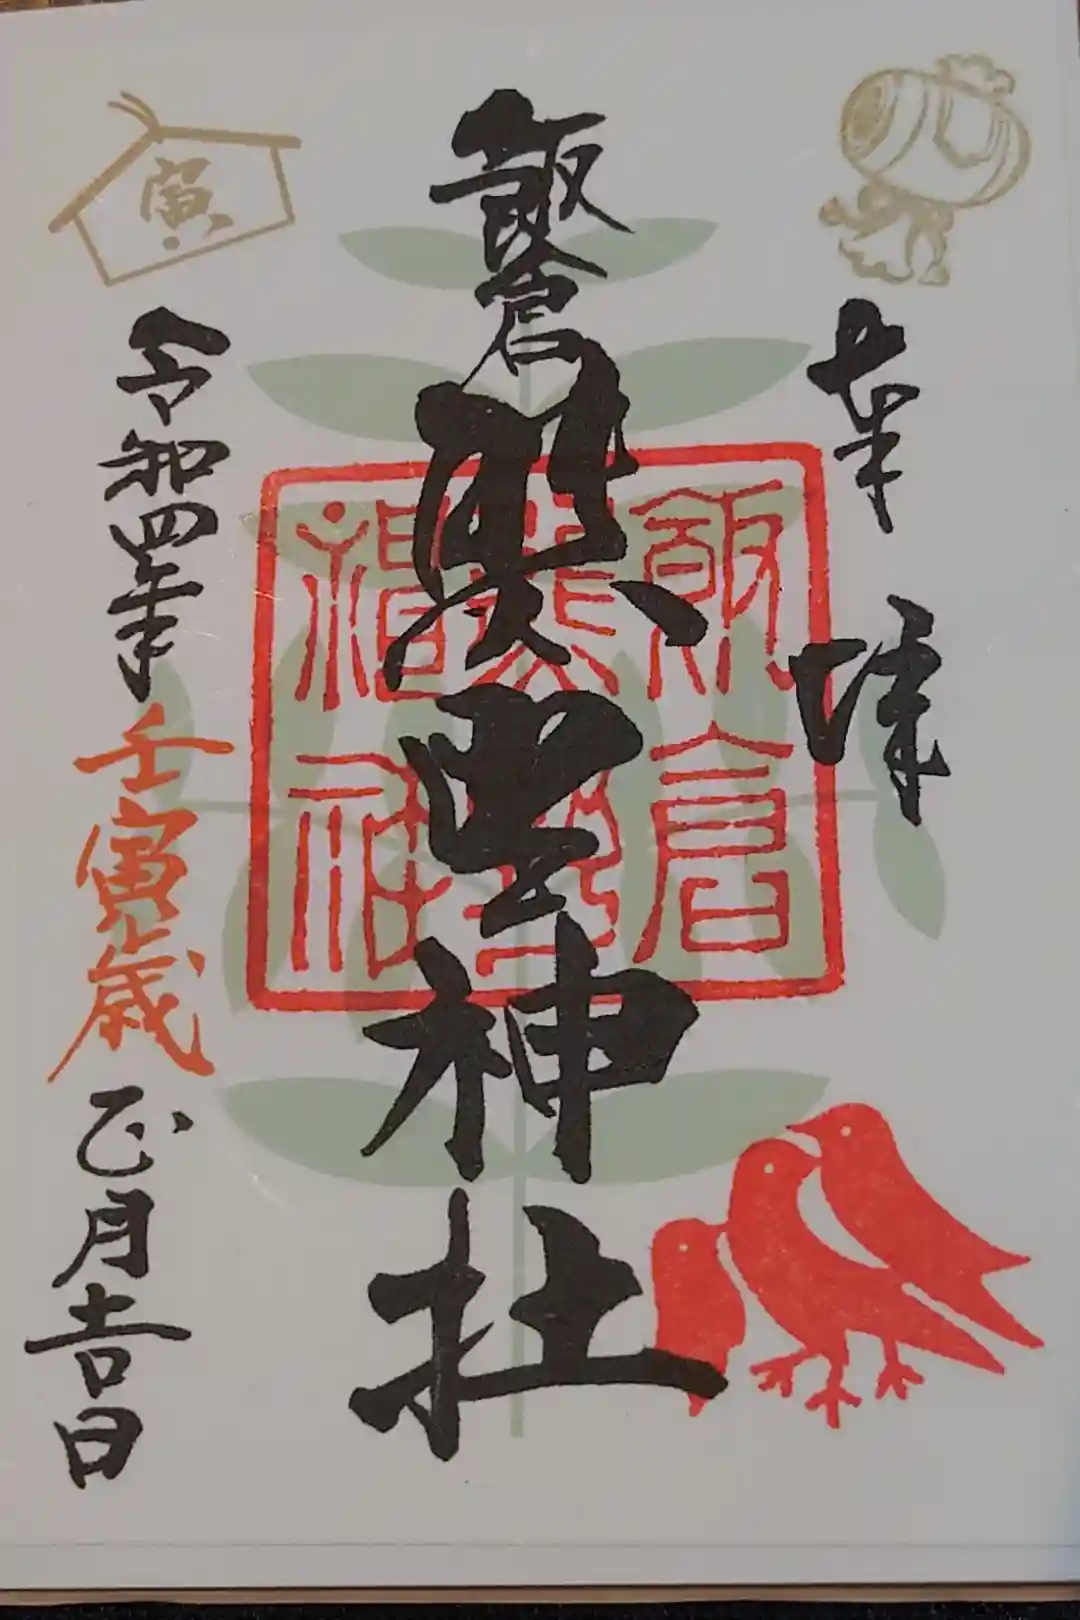 奉拝
飯倉熊野神社
飯倉
寅
令和四年壬寅歳正月吉日